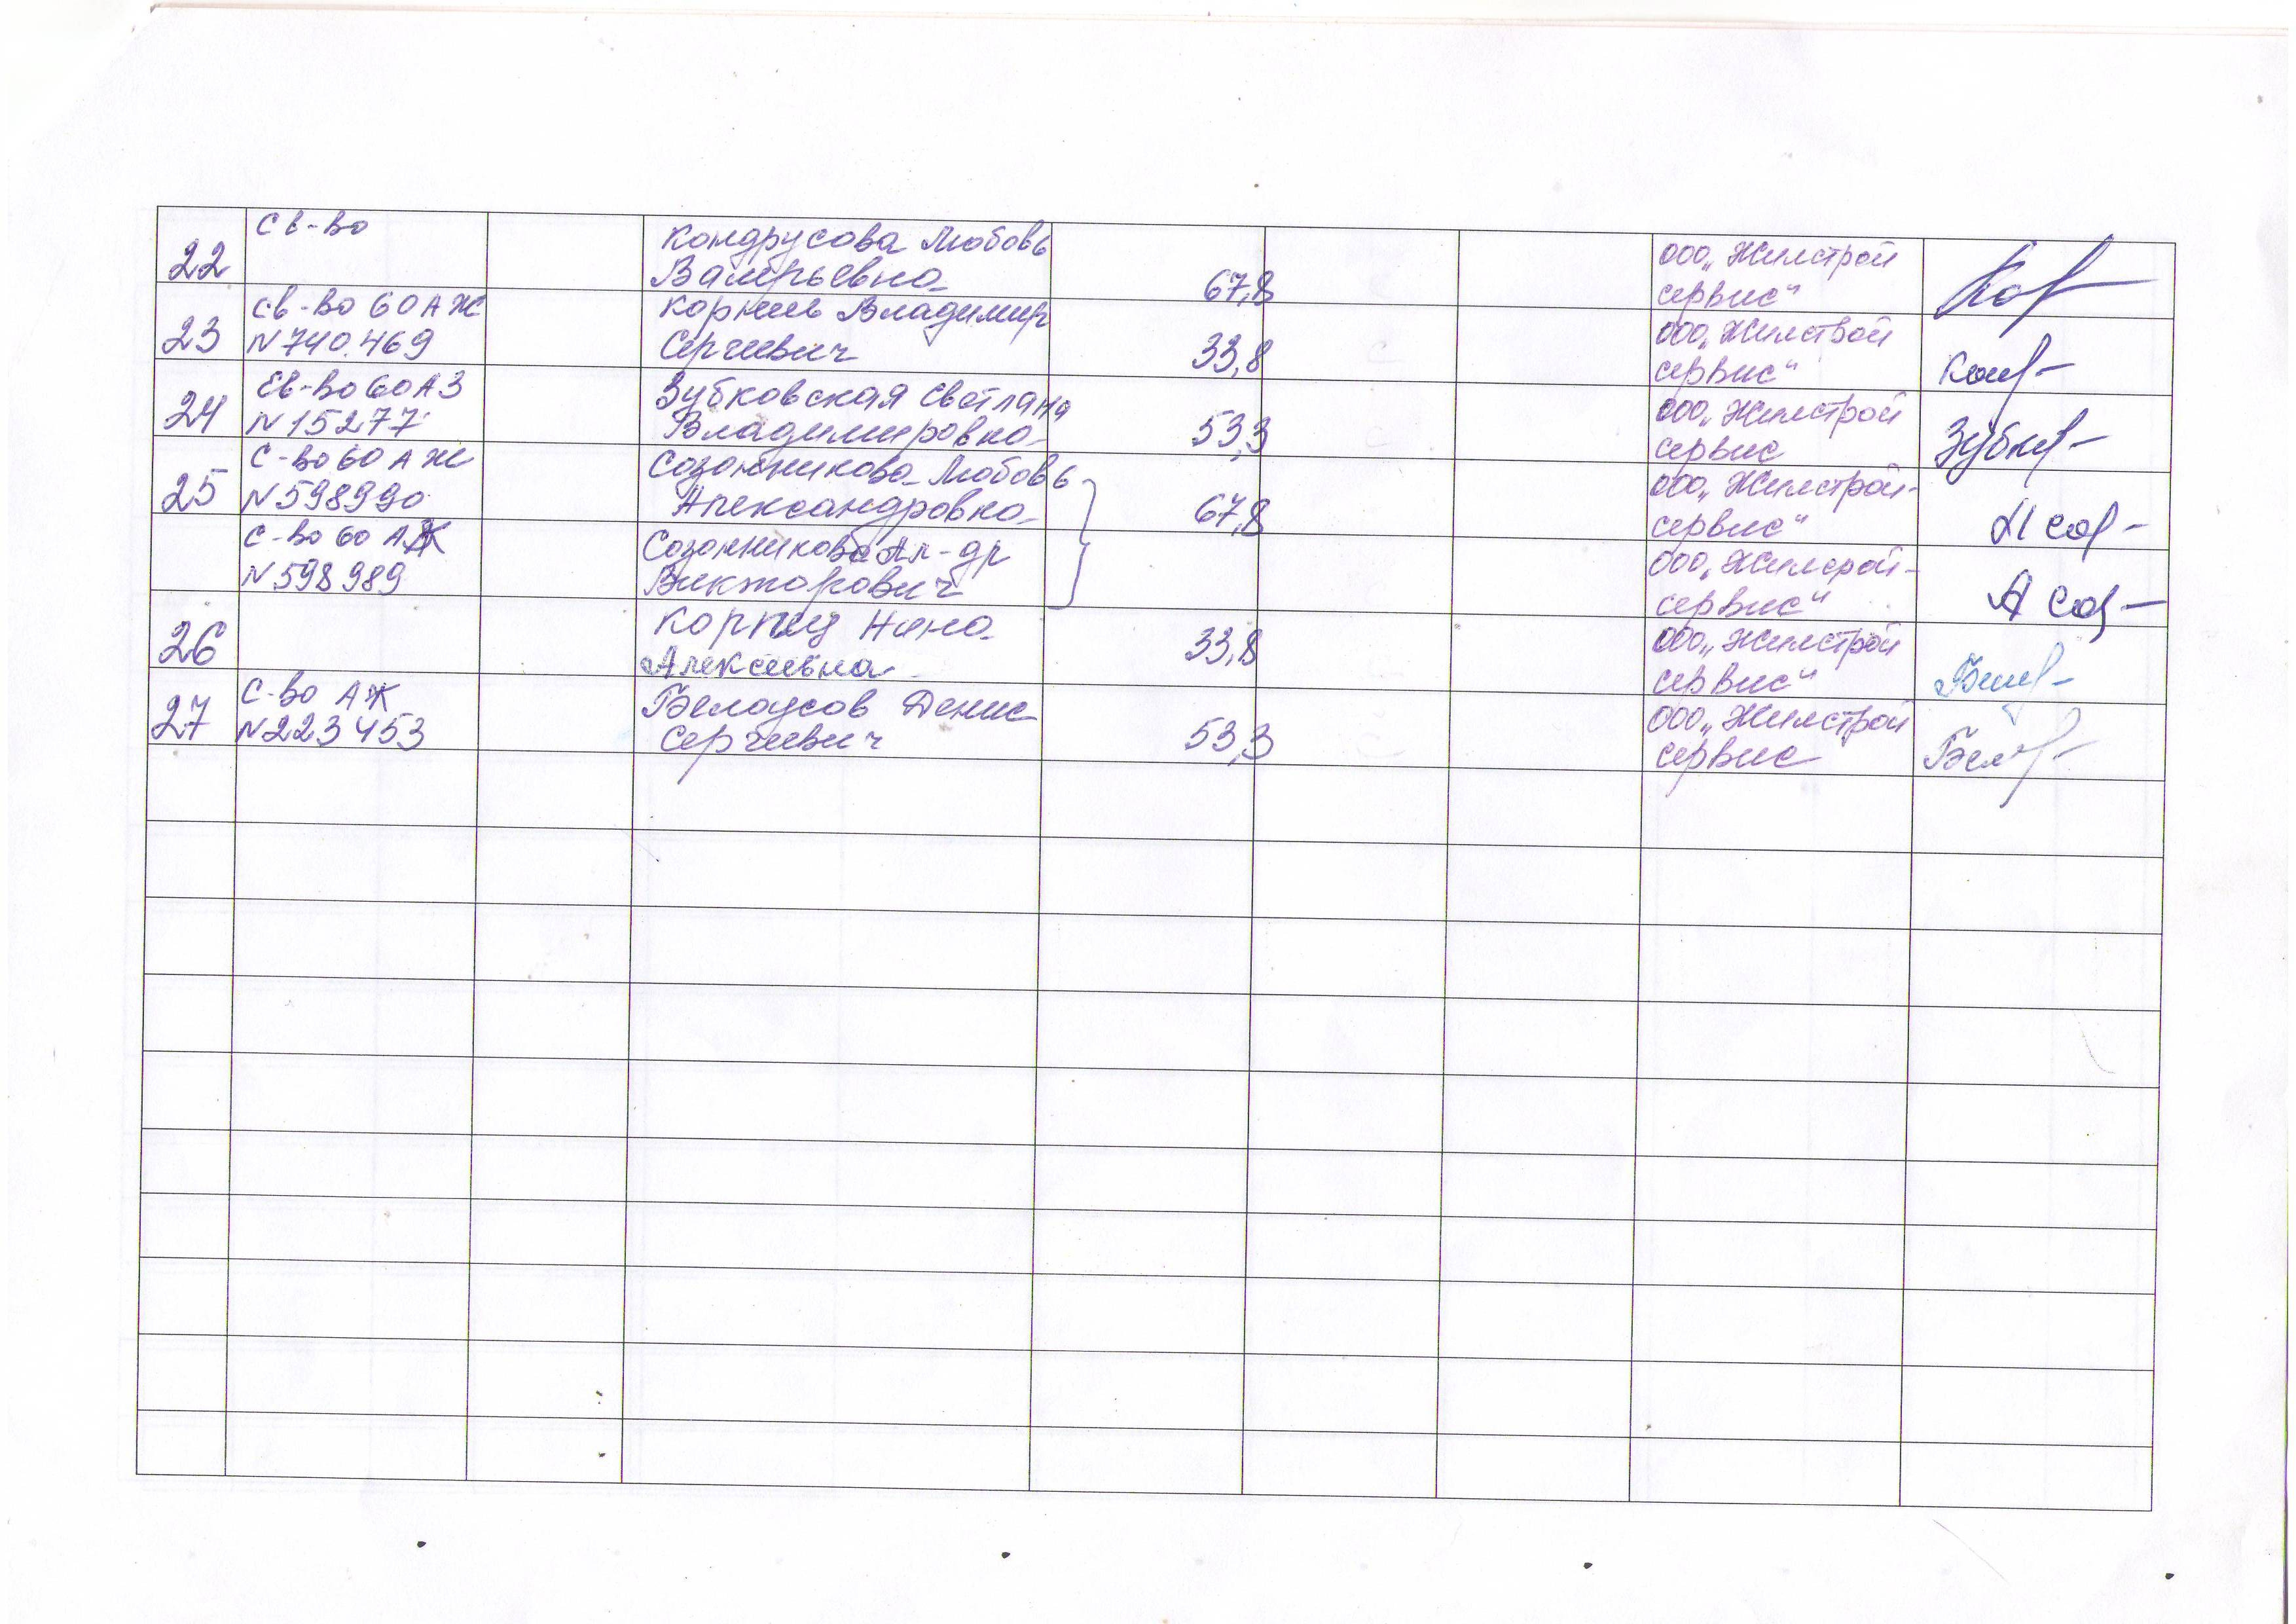 22
Св-во
Кондрусова Любовь
Валерьевна
67,8
ООО „Жилстрой
сервис“
23
св-во 60 АЖ
N 740.469
Корнель Владимир
Сергеевич
33,8
ООО „Жилствой
сервис“
24
Св-во 60 АЗ
N 15277
Зубковская Светлана
Владимировна
53,3
ООО „Жилстрой
сервис
Зубков
25
С-во 60 АЖ
N 598990
Созонникова Любовь
Александровна
67,8
ООО „Жилстрой-
сервис“
С-во 60 АЖ
N 598989
Созонникова Ал-др
Викторович
ООО „Жилсрой-
сервис“
26
Нина
Алексеевна
33,8
ООО „Жилстрой
сервис“
27
С-во АЖ
N 223453
Белоусов Денис
Сергеевич
53,3
ООО „Жилстрой
сервис